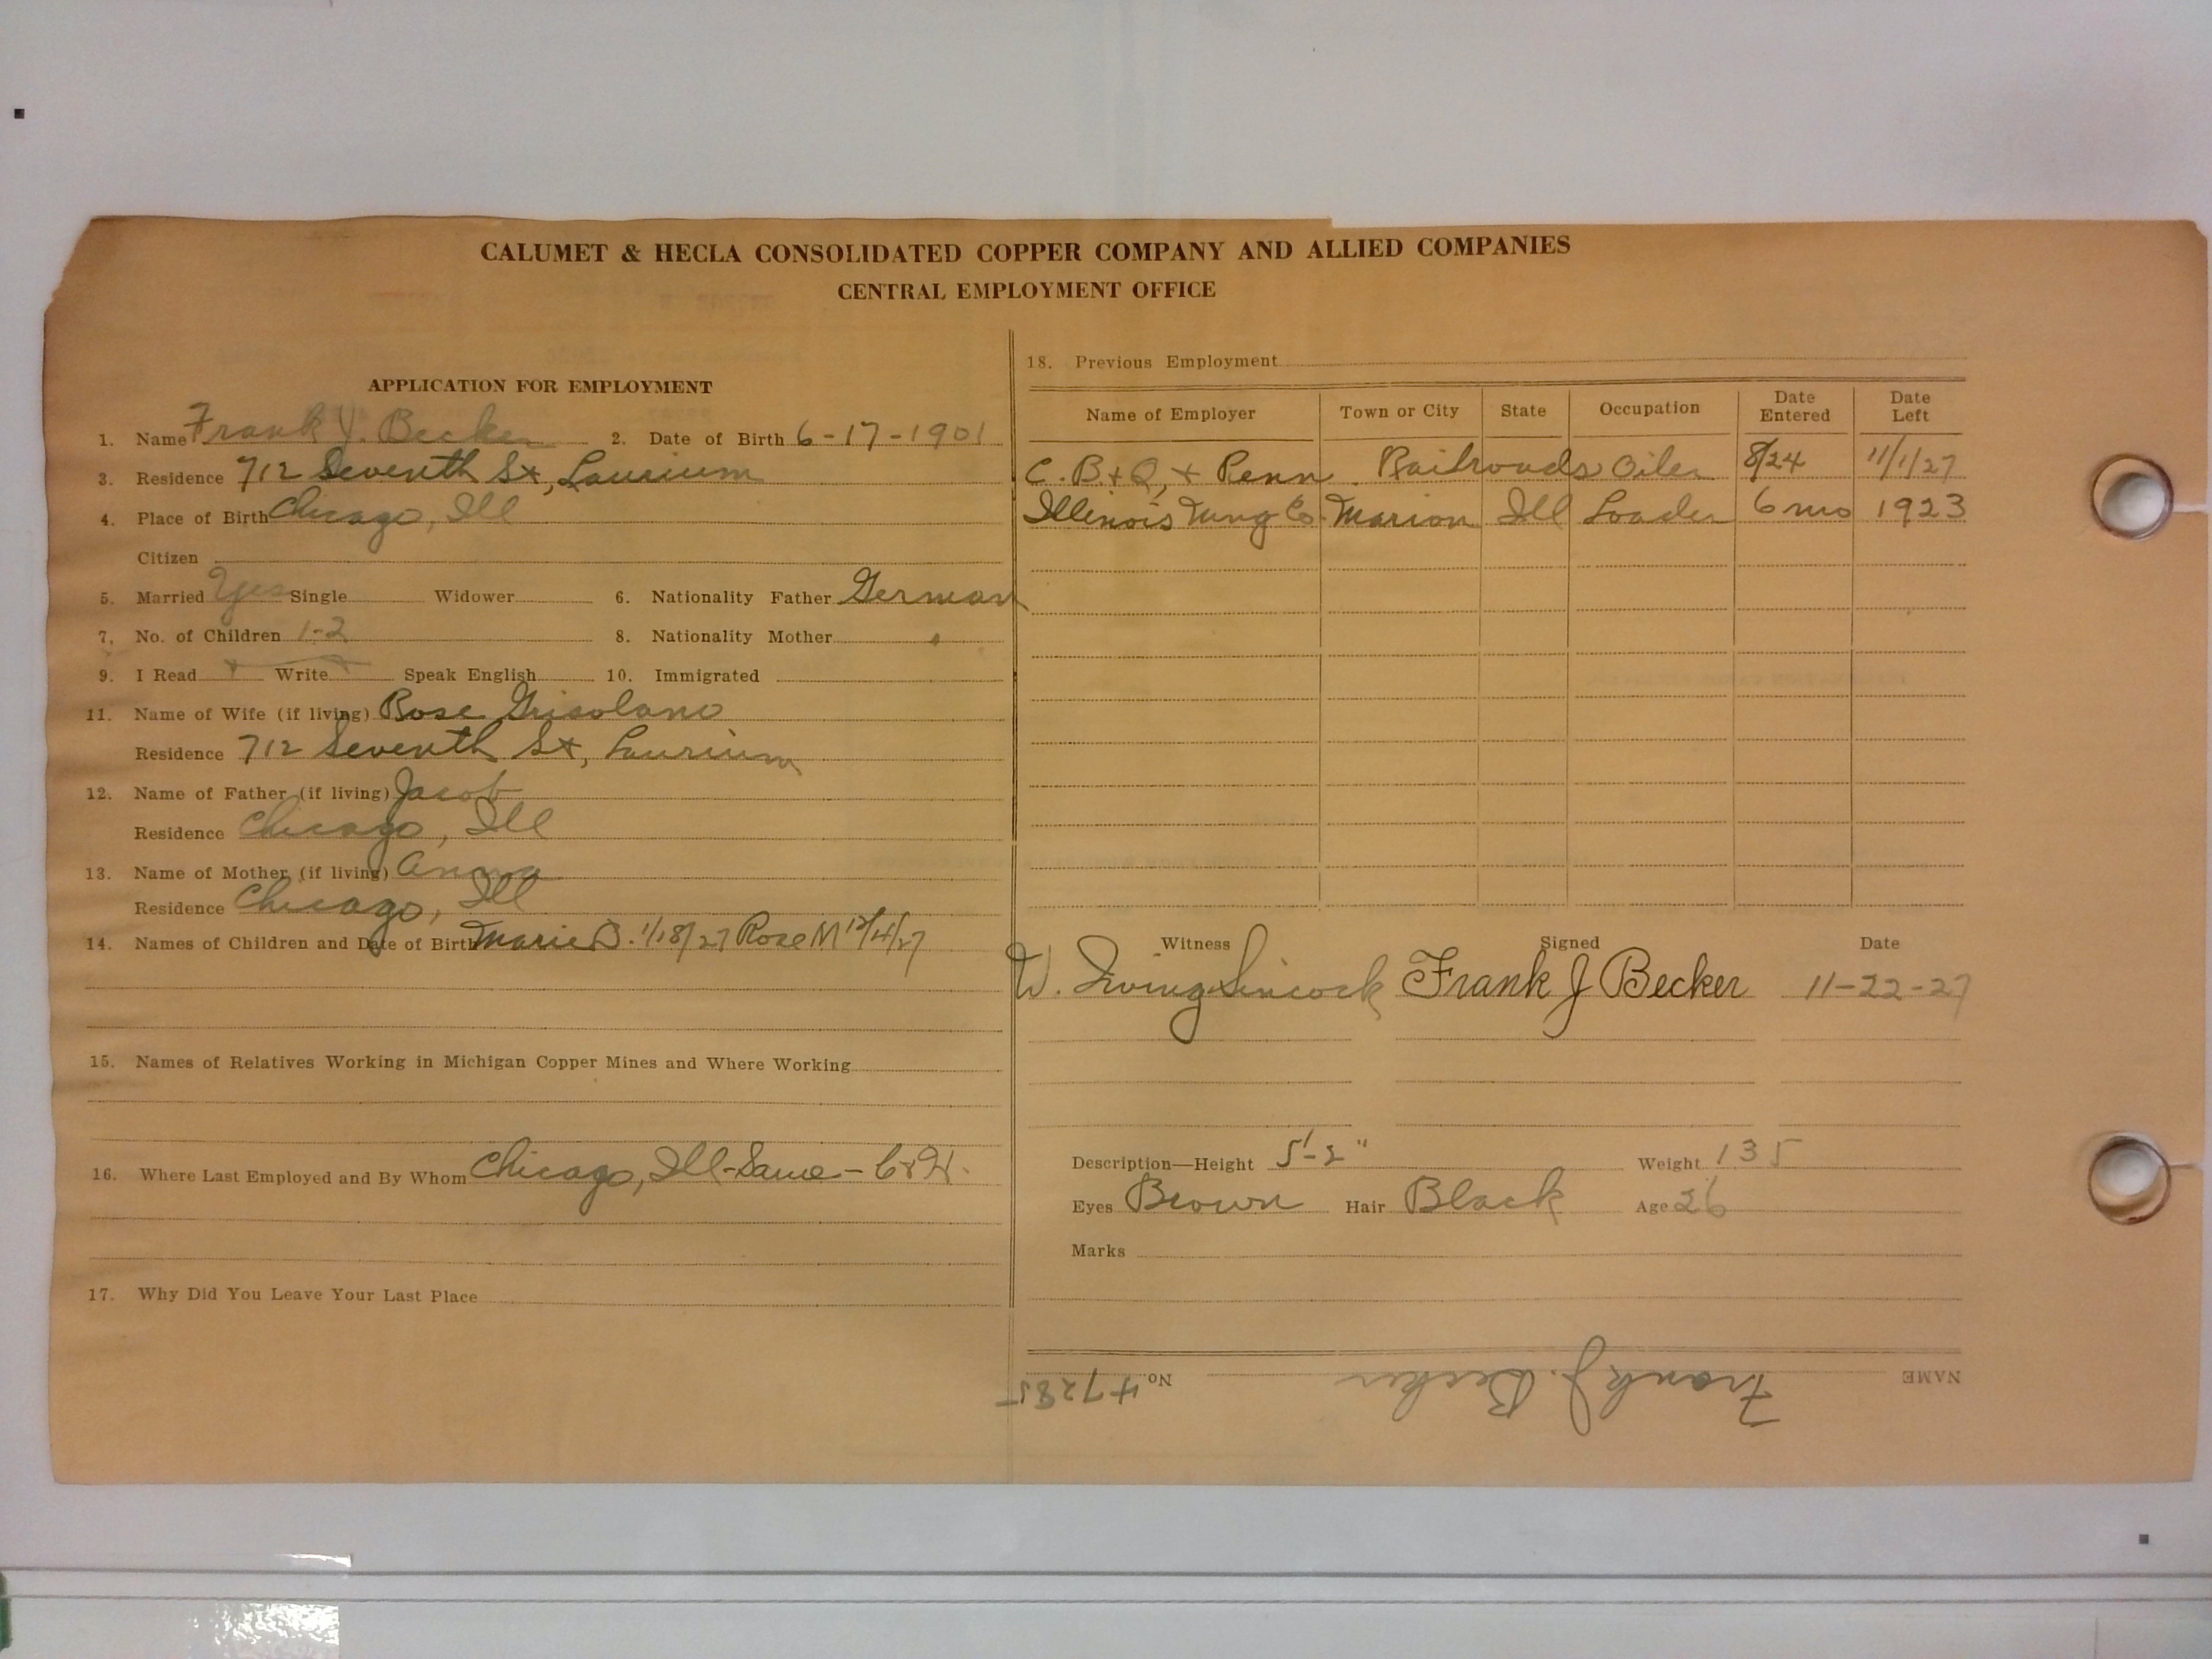 CALUMET & HECLA CONSOLIDATED COPPER COMPANY AND ALLIED COMPANIES
CENTRAL EMPLOYMENT OFFICE
APPLICATION FOR EMPLOYMENT
1. Name Frank J. Becker 2. Date of Birth 6-17-1901
3. Residence 712 Seventh St, Laurium
4. Place of Birth Chicago, Ill
Citizen
5. Married Yes Single Widower 6. Nationality Father German
7. No. of Children 1-2 8. Nationality Mother "
9. I Read + Write + Speak English 10. Immigrated
11. Name of Wife (if living) Rose Grisolano
Residence 712 Seventh St, Laurium
12. Name of Father (if living) Jacob
Residence Chicago, Ill
13. Name of Mother (if living) Anna
Residence Chicago, Ill
14. Names of Children and Date of Birth Marie B. 1/18/27 Rose M 12/4/27
15. Names of Relatives Working in Michigan Copper Mines and Where Working
16. Where Last Employed and By Whom Chicago, Ill - Same - C&H.
17. Why Did You Leave Your Last Place
18. Previous Employment
Name of Employer Town or City State Occupation Date Entered Date Left
C. B. & Q, & Penn. Railroads Oiler 8/24 11/1/27
Illinois Co. Marion Ill Loader 6 mo 1923
Witness Signed Date
W. Irving Sincock Frank J Becker 11-22-27
Description—Height 5'-2" Weight 135
Eyes Brown Hair Black Age 26
Marks
NAME Frank J. Becker No. 47285